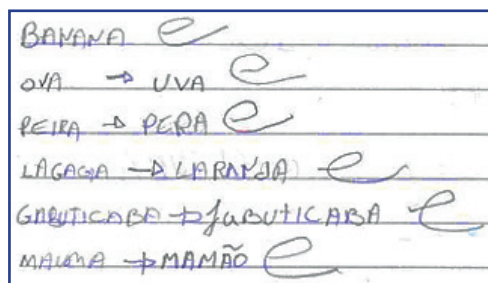 BANANA e
OVA → UVA e
PEIRA → PERA e
LAGAGIA → LARANJA e
GABUTICABA → JABUTICABA e
→ MAMÃO e